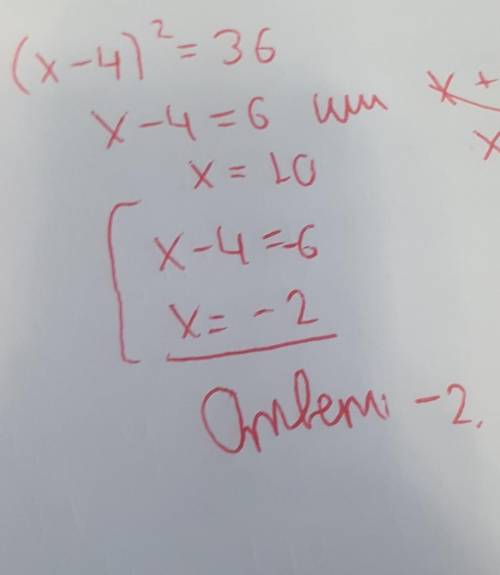 (x-4)² = 36
x-4=6 или
x = 10
x-4=-6
x= -2
Ответ: -2.
x +
x